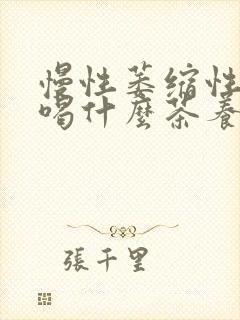 慢性萎缩性
喝什麼茶養
張千里